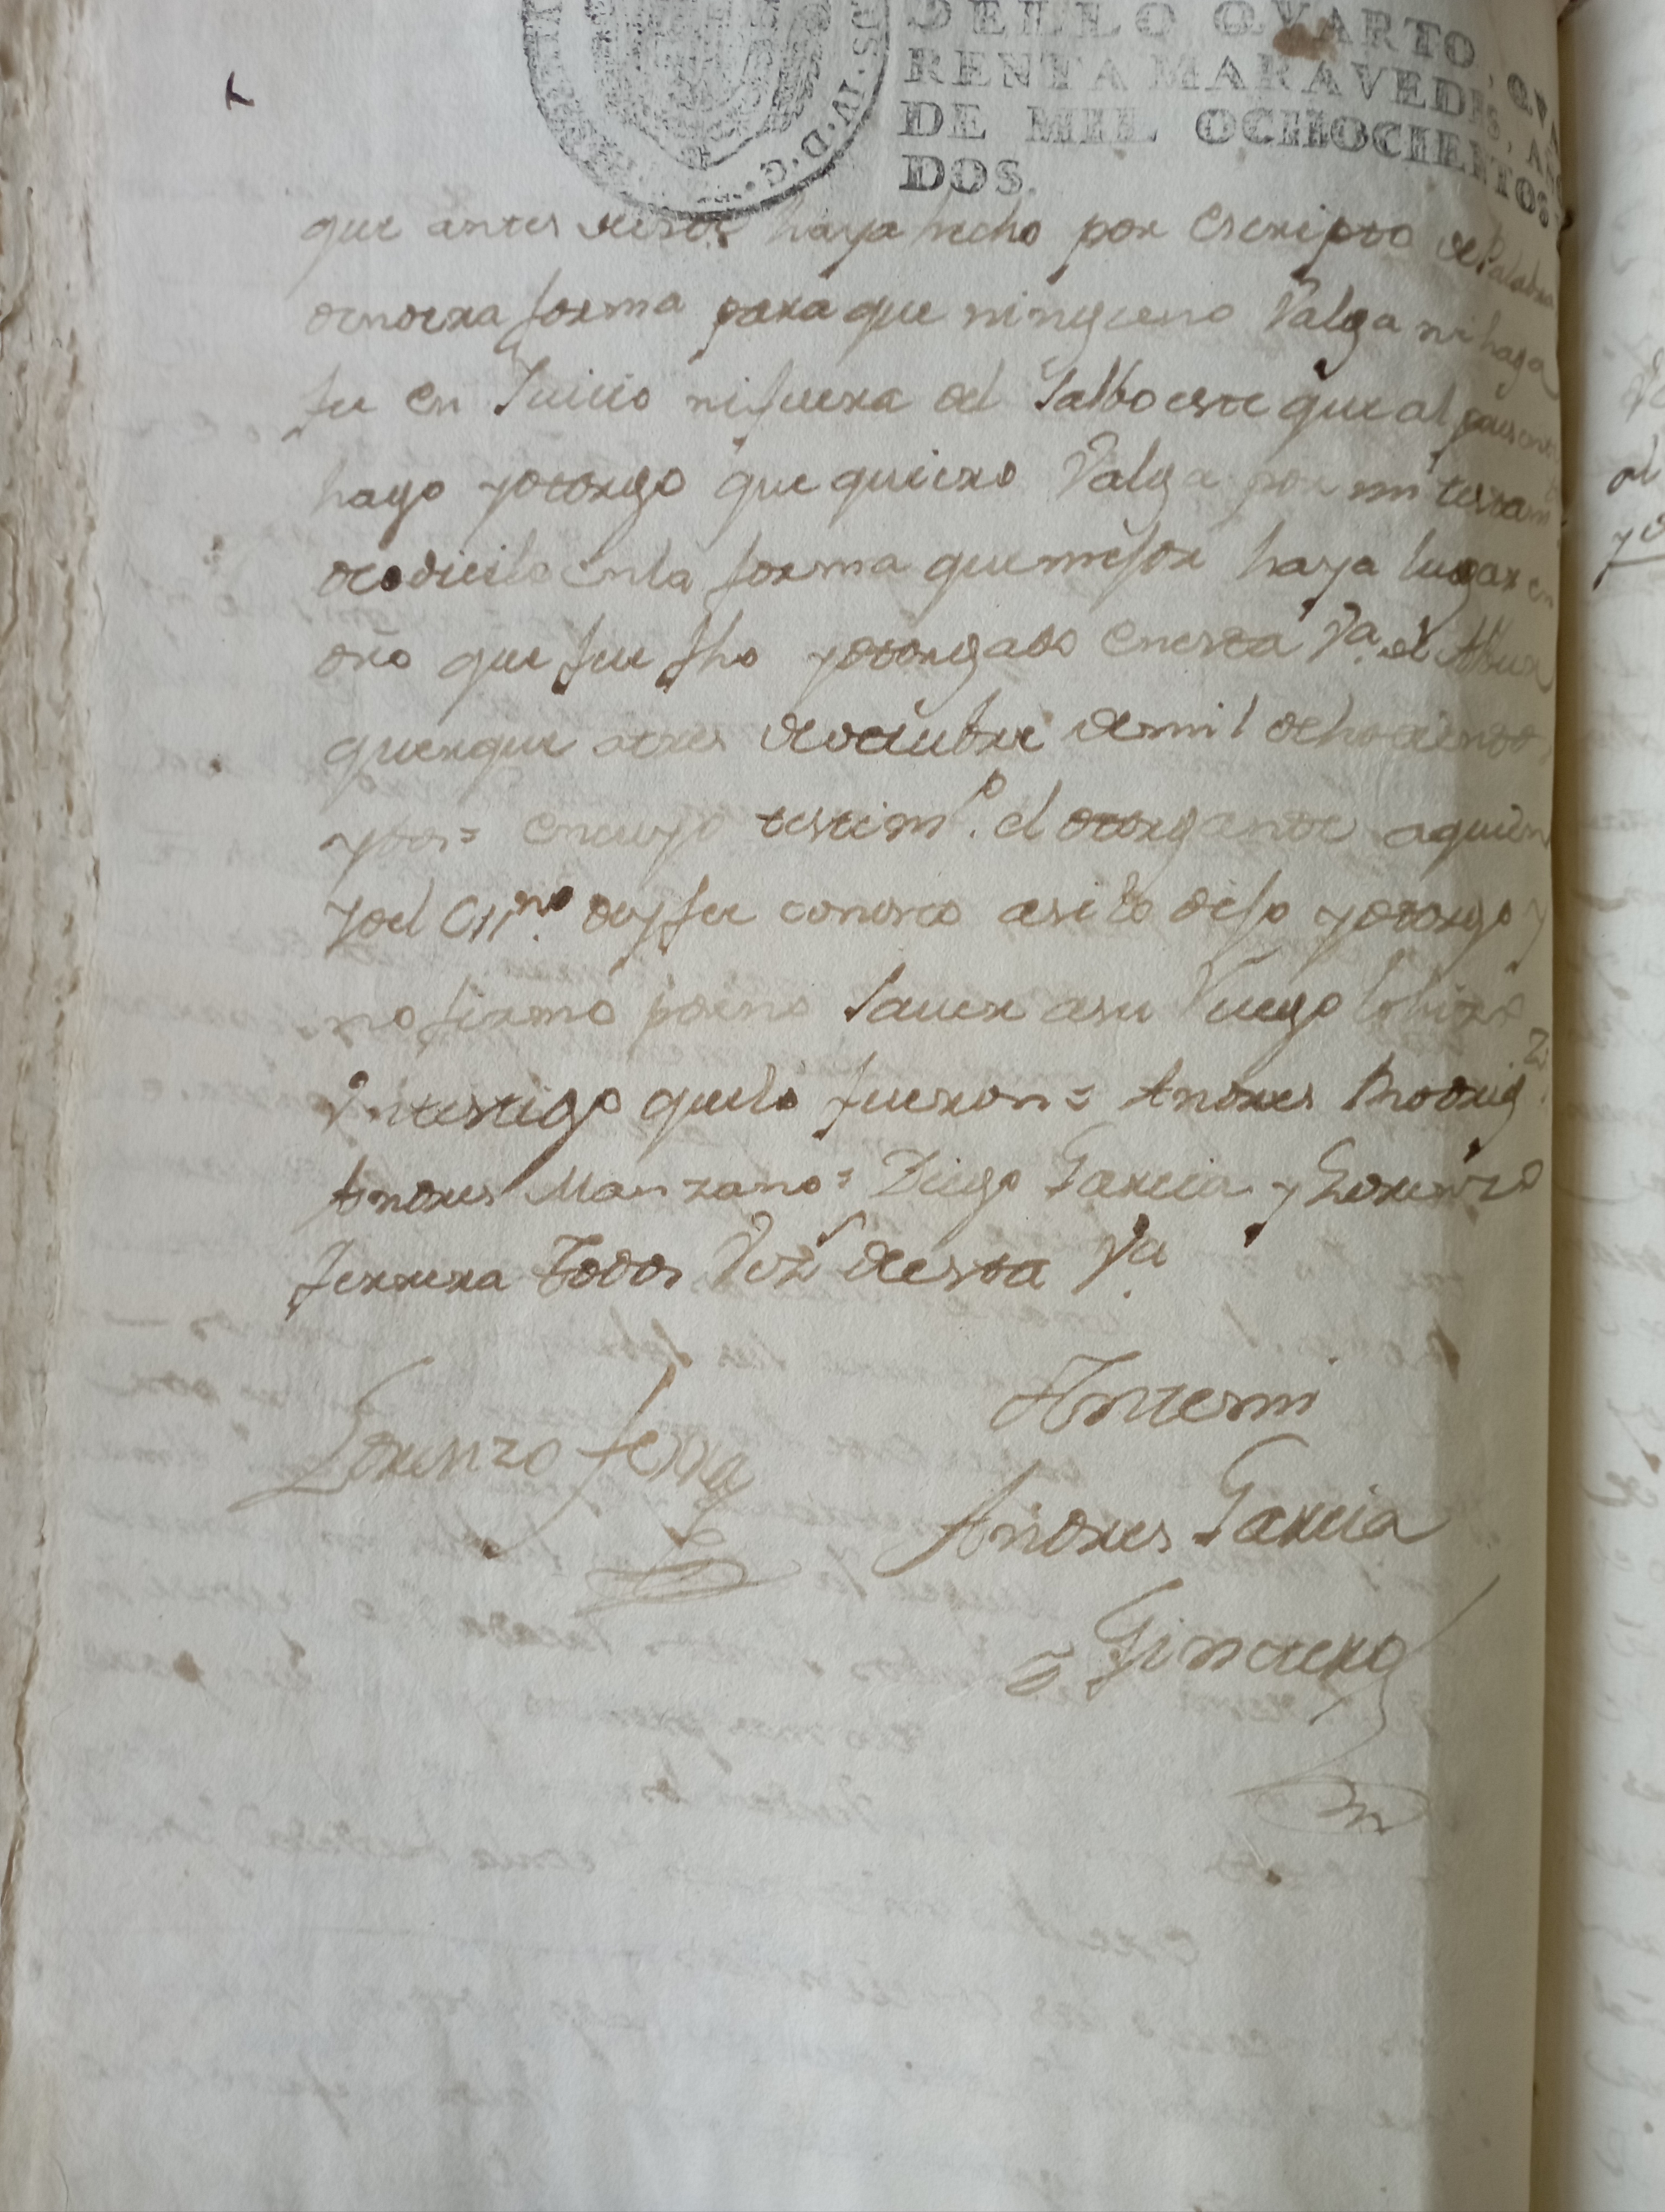 SELLO QVARTO, QVA
RENTA MARAVEDIS, AÑO
DE MIL OCHOCIENTOS
DOS.
que antes deeste haya hecho por escripto de Palabra
oenotra forma para que ninguno Valga ni haga
fee en Juicio nifuera del Salbo este que al presente
hago yotorgo que quiero Valga por mi testam
ocodicilo enla forma quemejor haya lugar en
dro que fue fho yotorgado enesta Va. de Albur
querque atres deoctubre demil ochocientos
ydos= encuyo testimo. el otorgante aquien
yoel Essno. doy fee conosco asi lo dijo yotorgo y
nofirmo porno Saver asu Ruego lo hizo
Untestigo quelo fueron= Andres Rodrigz.
Andres Manzano= Diego Garcia y Lorenzo
ferrera todos Vezs desta Va.
Lorenzo ferra
Antemi
Andres Garcia
Gintero